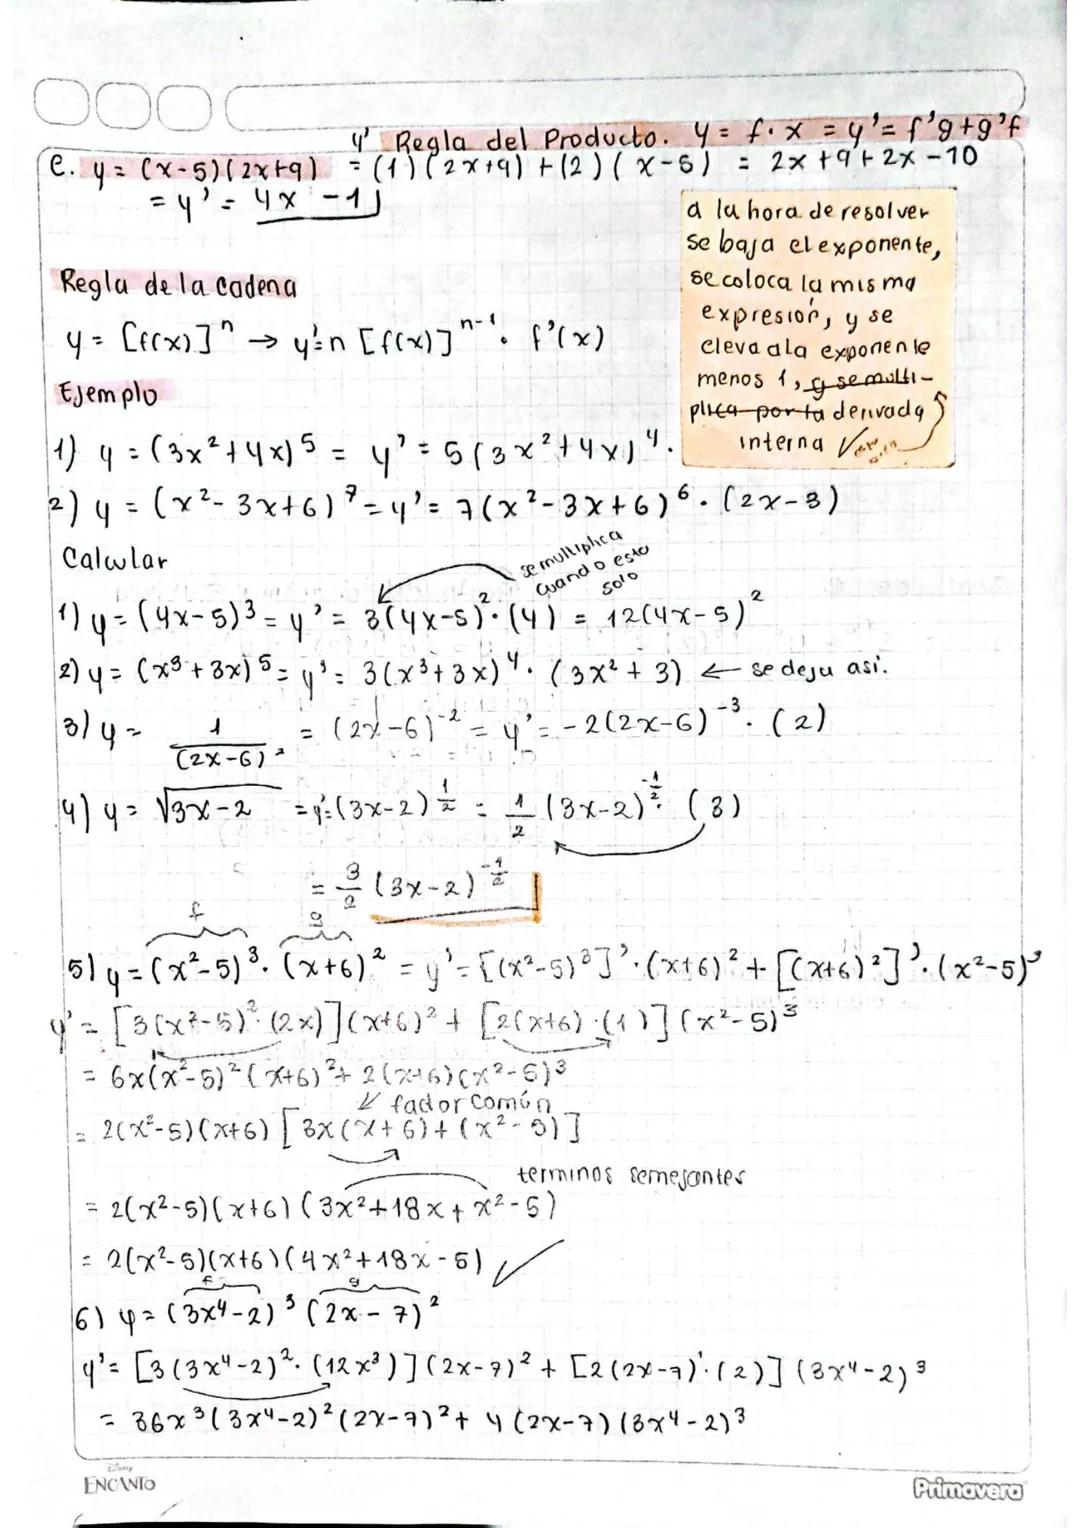 y' Regla del Producto. y = f·x = y' = f'g+g'f
e. y = (x-5)(2x+9) = (1)(2x+9)+(2)(x-5) = 2x+9+2x-10
= y' = 4x -1
a la hora de resolver
se baja el exponente,
se coloca la misma
expresión, y se
eleva a la exponente
menos 1, y se multi-
plica por la derivada
interna
Regla de la cadena
y = [f(x)]ⁿ → y'=n [f(x)]ⁿ⁻¹ · f'(x)
Ejemplo
1) y = (3x²+4x)⁵ = y' = 5(3x²+4x)⁴.
2) y = (x²-3x+6)⁷ = y' = 7(x²-3x+6)⁶ · (2x-3)
Calcular
se multiplica
cuando esto
solo
1) y = (4x-5)³ = y' = 3(4x-5)²·(4) = 12(4x-5)²
2) y = (x³+3x)⁵ = y' = 3(x³+3x)⁴ · (3x²+3) ← se deja así.
3) y = 1/(2x-6)² = (2x-6)⁻² = y' = -2(2x-6)⁻³ · (2)
4) y = √3x-2 = y'=(3x-2)^½ = 1/2 (3x-2)^-½ · (3)
= 3/2 (3x-2)^-½
f g
5) y = (x²-5)³ · (x+6)² = y' = [(x²-5)³]' · (x+6)² + [(x+6)²]' · (x²-5)³
y' = [3(x²-5)²·(2x)](x+6)² + [2(x+6)·(1)](x²-5)³
= 6x(x²-5)²(x+6)²+ 2(x+6)(x²-5)³
↙ factor común
= 2(x²-5)(x+6) [3x(x+6)+(x²-5)]
terminos semejantes
= 2(x²-5)(x+6)(3x²+18x+x²-5)
= 2(x²-5)(x+6)(4x²+18x-5) ✓
f g
6) y = (3x⁴-2)³ (2x-7)²
y' = [3(3x⁴-2)²·(12x³)](2x-7)² + [2(2x-7)¹·(2)](3x⁴-2)³
= 36x³(3x⁴-2)²(2x-7)²+ 4(2x-7)(3x⁴-2)³
Disney
ENCANTO
Primavera